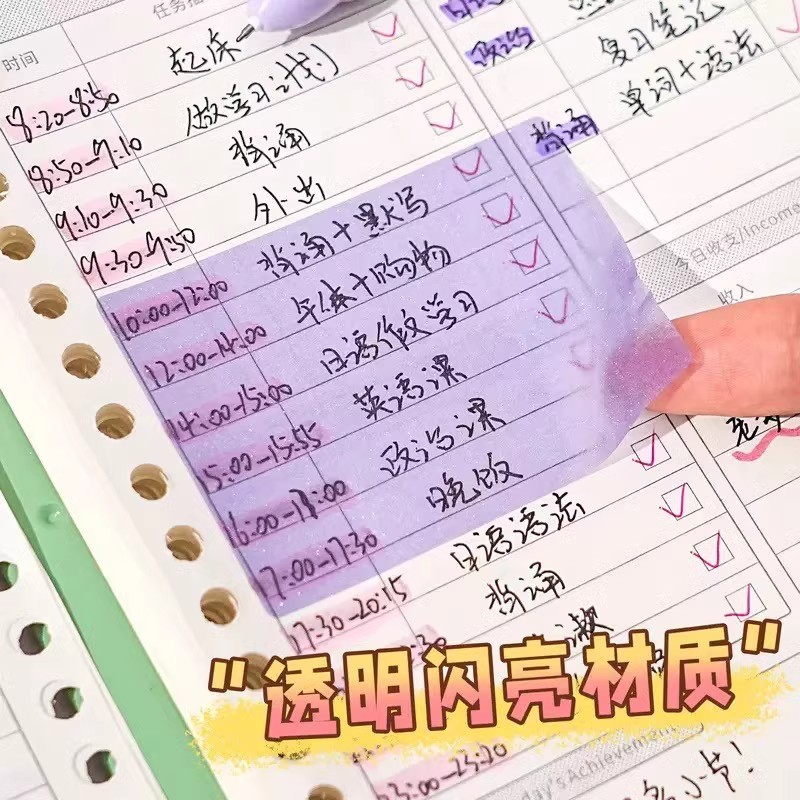 时间
任务描
8:20-8:50 起床
8:50-9:10 做学习计划
9:10-9:30 背诵
9:30-9:50 外出
10:00-12:00 背诵+默写
12:00-14:00 午休+购物
14:00-15:00 日语作文学习
15:00-15:55 英语课
16:00-17:00 政治课
17:00-17:30 晚饭
17:30-20:15 日语语法
背诵
日语
政治 复习笔记
背诵 单词+语法
今日收支/Income
收入
"透明闪亮材质"
day's Achievement
23:00-23:20